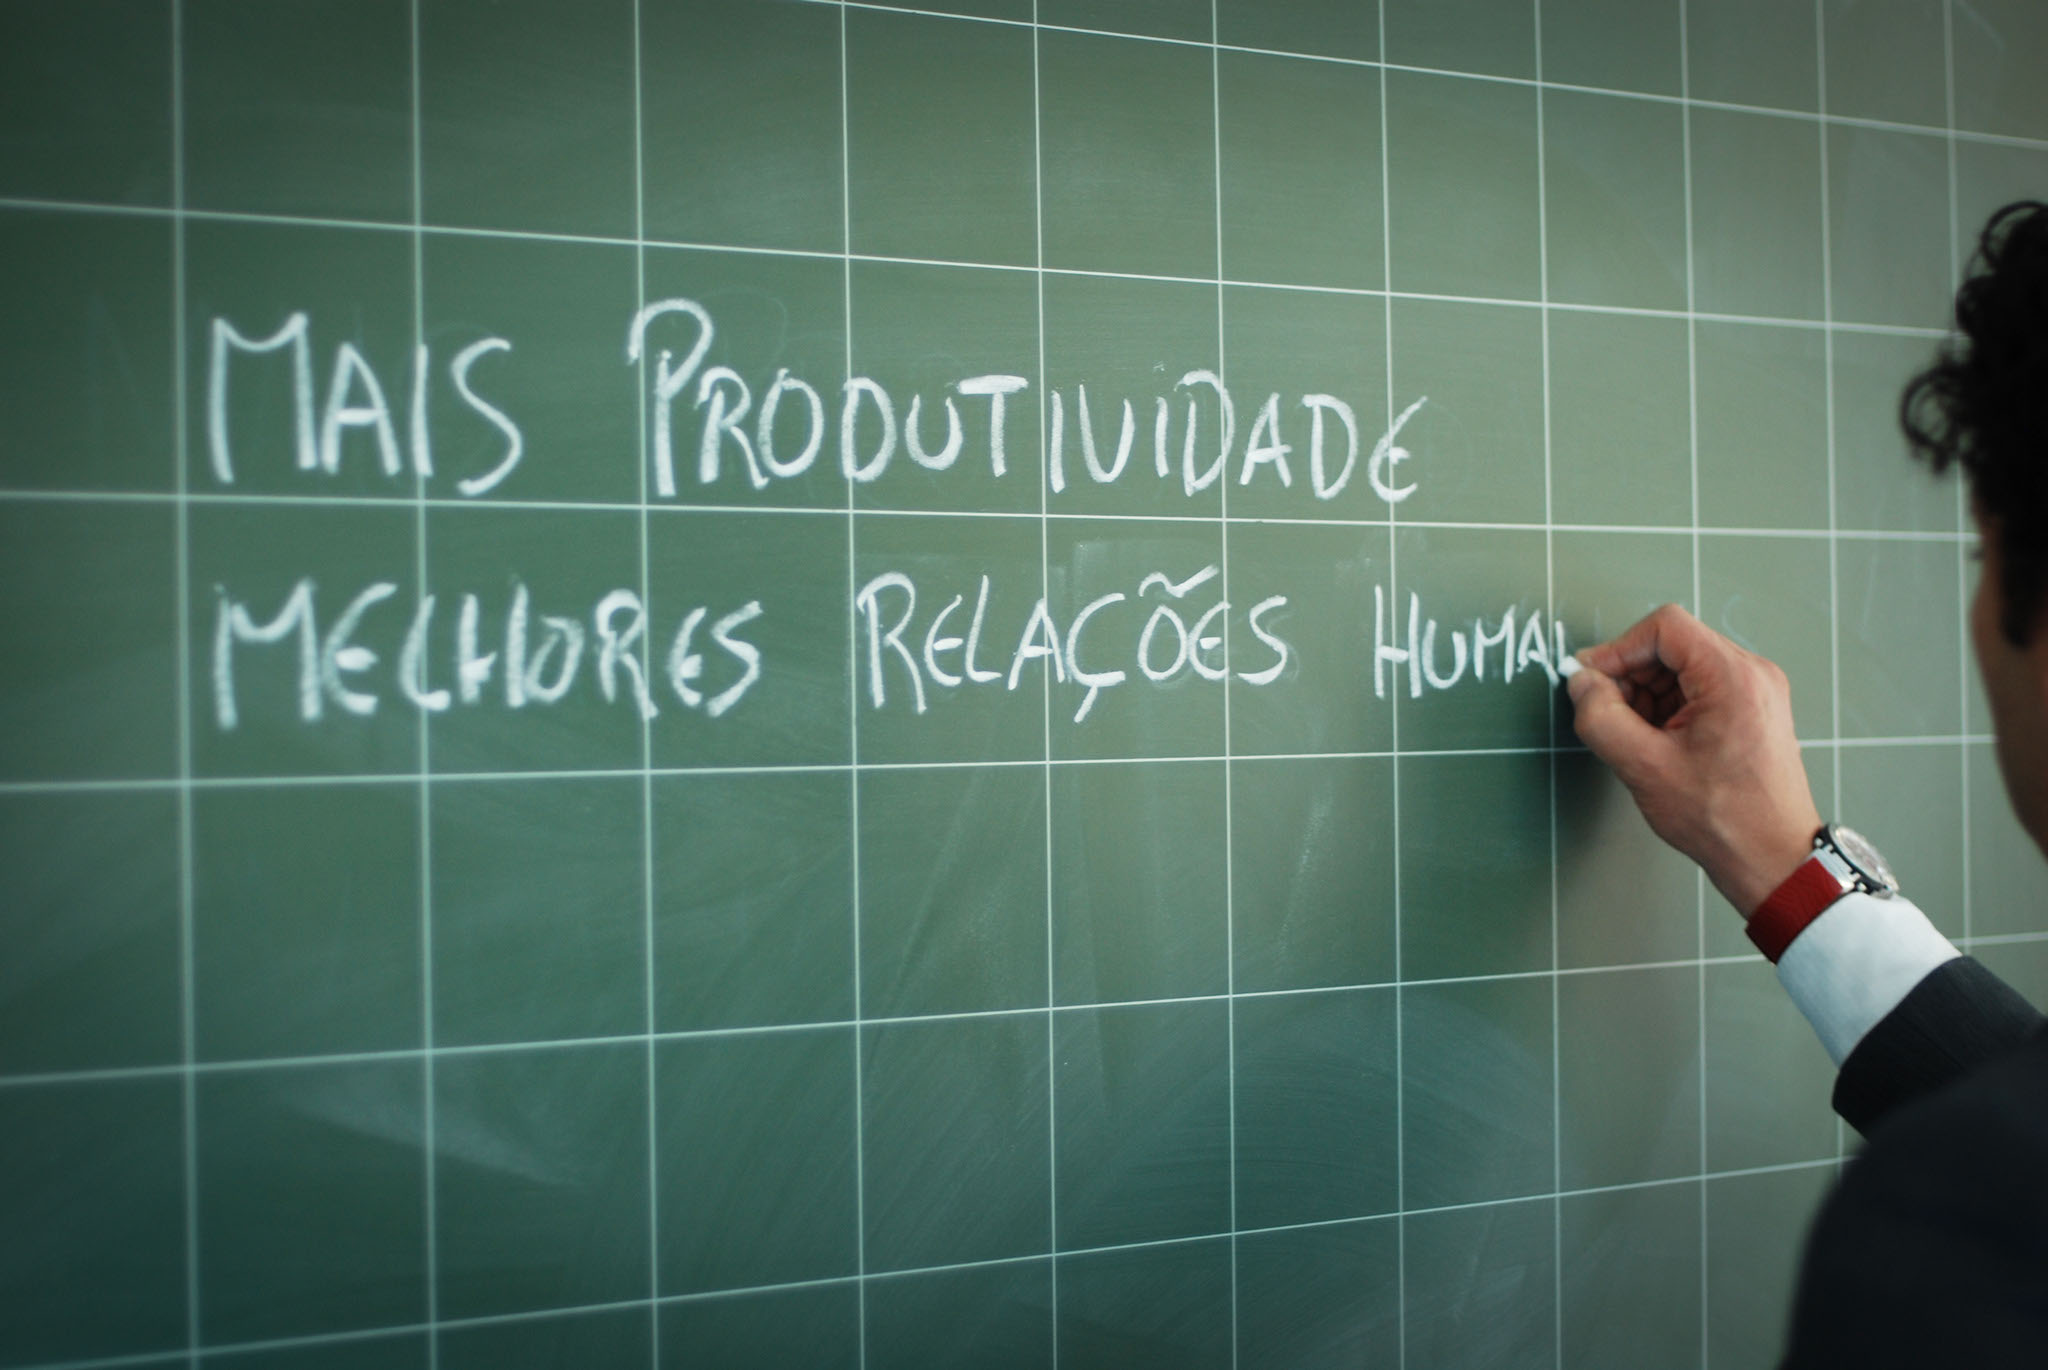 MAIS PRODUTIVIDADE
MELHORES RELAÇÕES